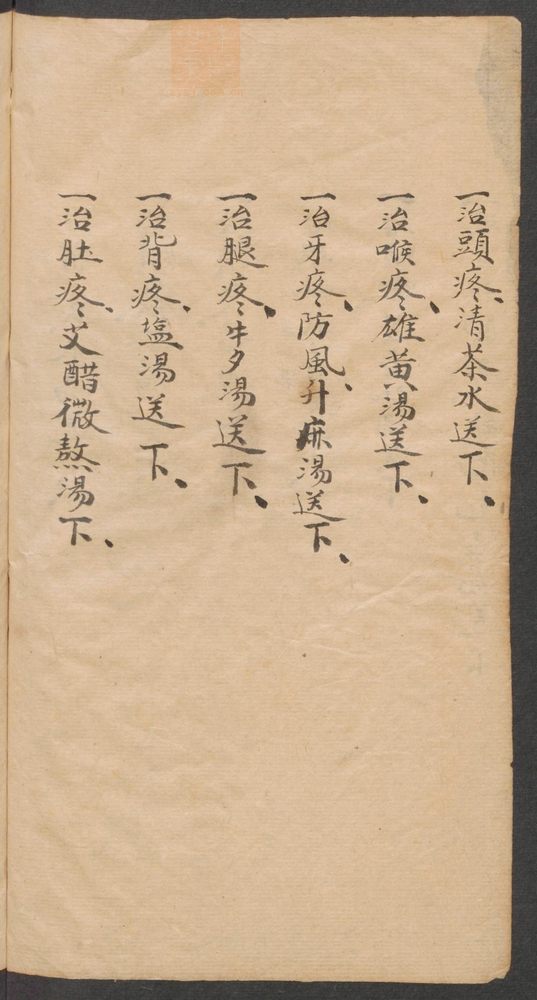 一治頭疼、清茶水送下、
一治喉疼、雄黄湯送下、
一治牙疼、防風、升麻湯送下、
一治腿疼、牛夕湯送下、
一治背疼、塩湯送下、
一治肚疼、艾醋微熬湯下、